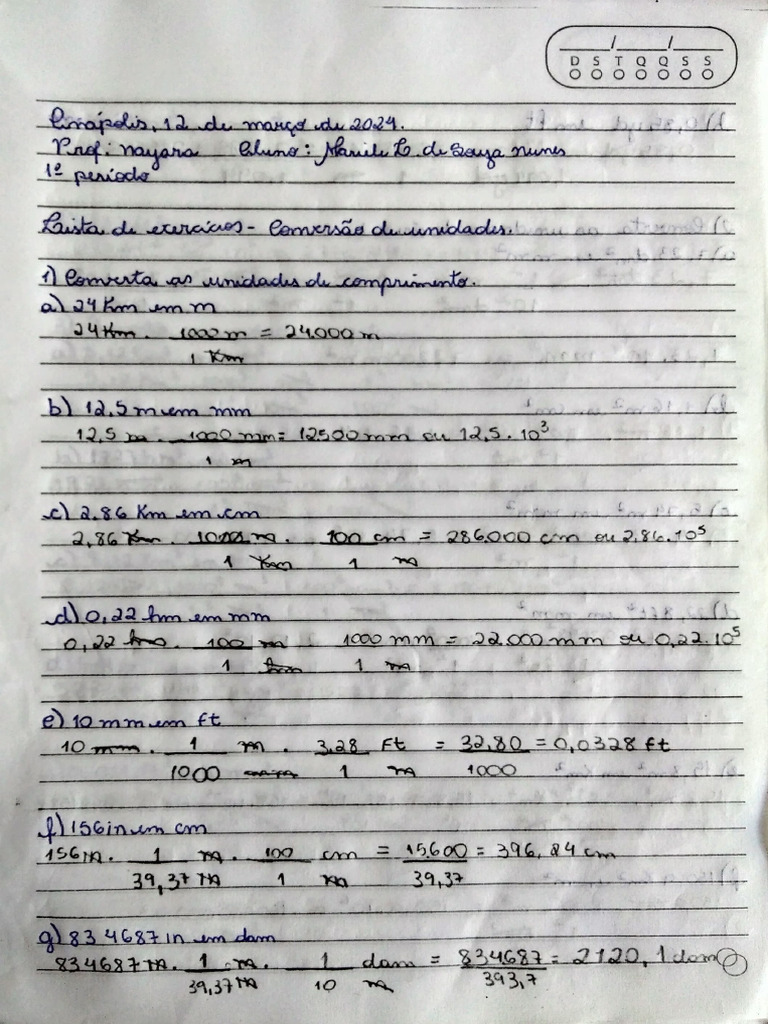 ___/___/___
D S T Q Q S S
Anápolis, 12 de março de 2024.
Prof: Nayara Aluno: Mariele L. de Souza Nunes
1º período
Lista de exercícios - Conversão de unidades.
1) Converta as unidades de comprimento.
a) 24 Km em m
24 Km . 1000 m = 24.000 m
1 Km
b) 12,5 m em mm
12,5 m . 1000 mm = 12500 mm ou 12,5 . 10³
1 m
c) 2,86 Km em cm
2,86 Km . 1000 m . 100 cm = 286.000 cm ou 2,86 . 10⁵
1 Km 1 m
d) 0,22 hm em mm
0,22 hm . 100 m . 1000 mm = 22.000 mm ou 0,22 . 10⁵
1 hm 1 m
e) 10 mm em ft
10 mm . 1 m . 3,28 ft = 32,80 = 0,0328 ft
1000 mm 1 m 1000
f) 156 in em cm
156 in . 1 m . 100 cm = 15.600 = 396,24 cm
39,37 in 1 m 39,37
g) 834687 in em dam
834687 in . 1 m . 1 dam = 834687 = 2120,1 dam
39,37 in 10 m 393,7